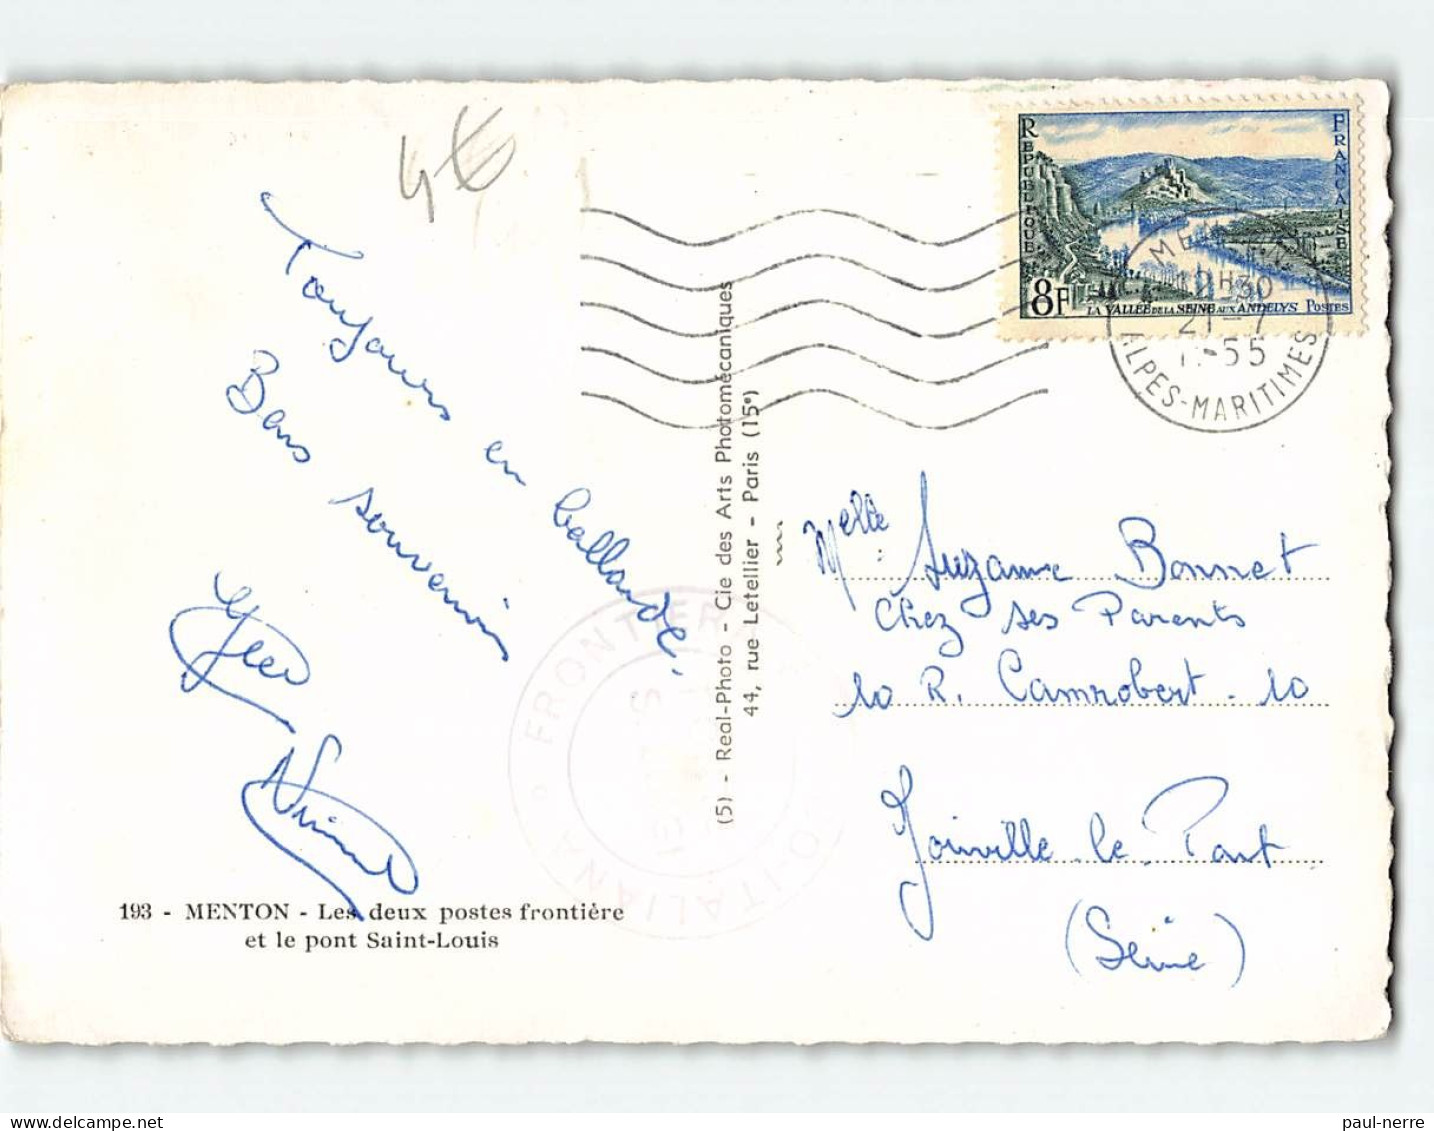 4€
Toujours en ballade.
Bons souvenirs
193 - MENTON - Les deux postes frontière
et le pont Saint-Louis
(5) - Real-Photo - Cie des Arts Photomécaniques
44, rue Letellier - Paris (15e)
FRONTIERA ITALIANA
REPUBLIQUE FRANCAISE
8F
LA VALLEE DE LA SEINE AUX ANDELYS POSTES
MENTON
12H30
21-7
1955
ALPES-MARITIMES
Melle Suzanne Bonnet
Chez ses Parents
10 R. Camrobert - 10
Joinville-le-Pont
(Seine)
paul-nerre